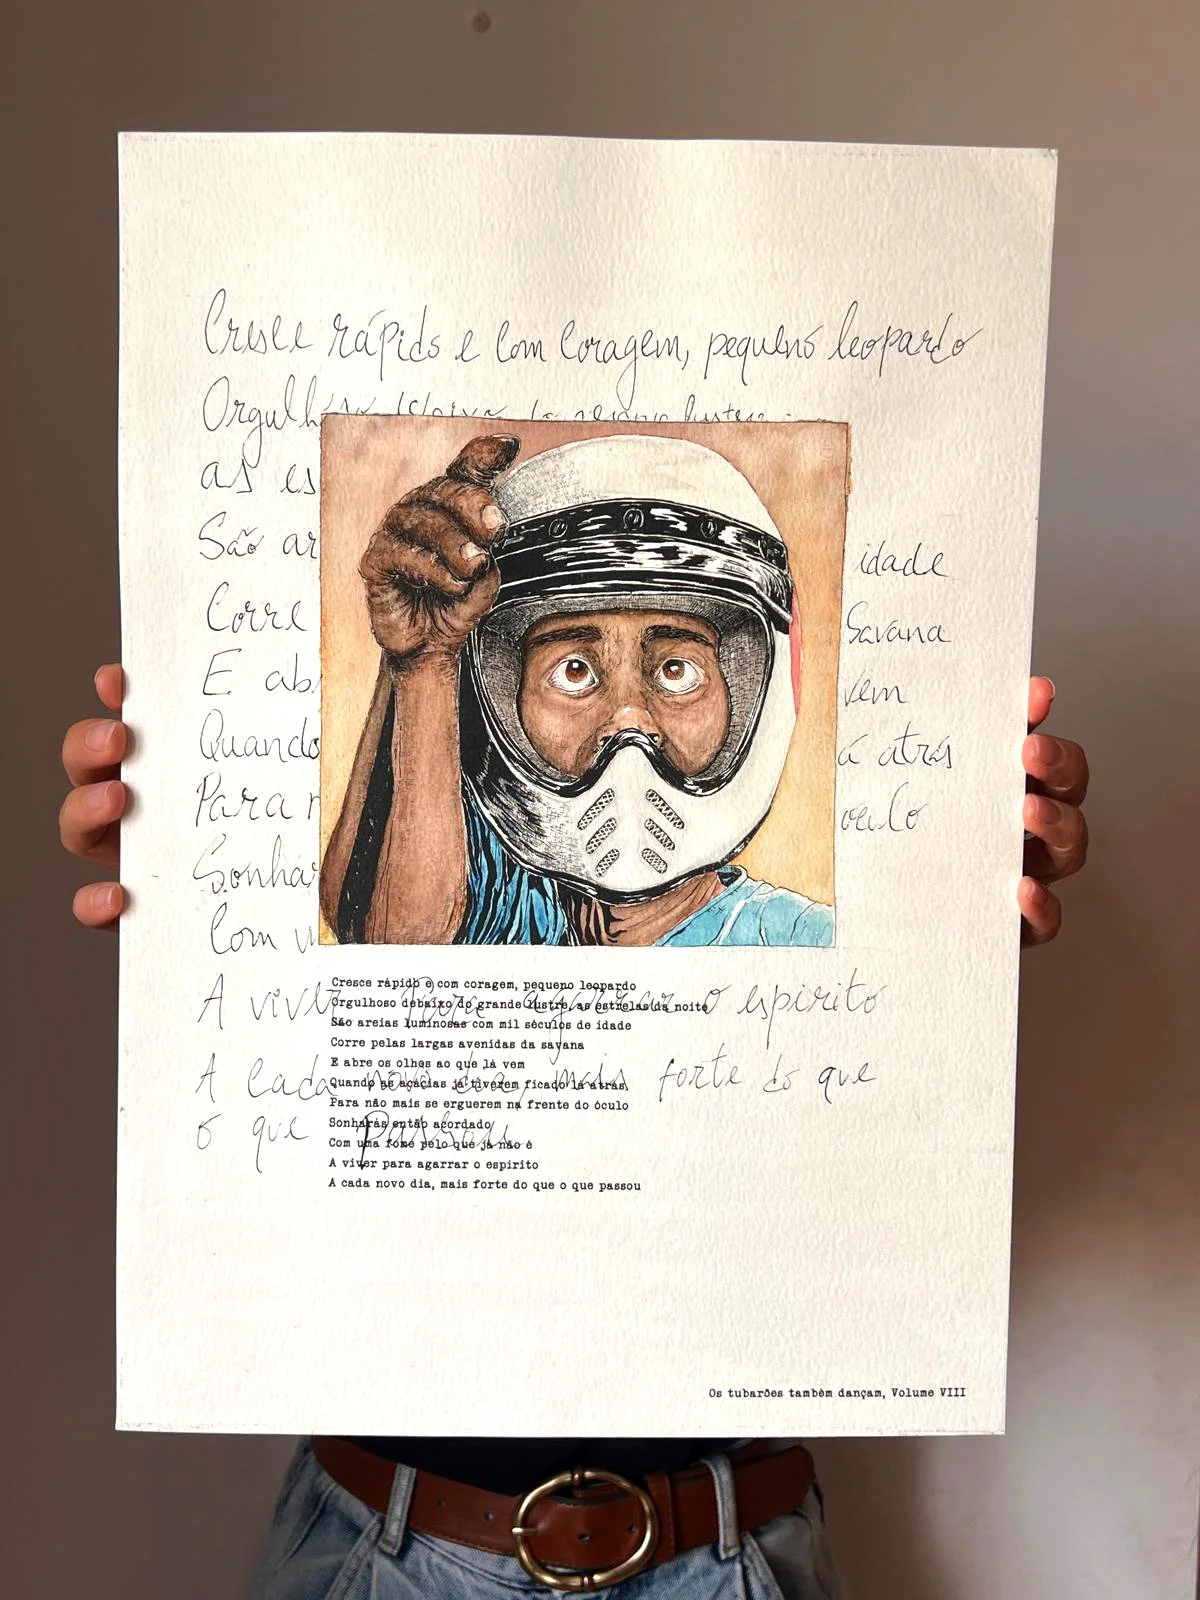 Cresce rápido e com coragem, pequeno leopardo
Orgulhoso debaixo do grande lustre
as es
São ar idade
Corre Savana
E ab vem
Quando á atrás
Para n oculo
Sonhar
Com u
A viver para agarrar o espirito
A cada novo dia, mais forte do que
o que passou
Cresce rápido e com coragem, pequeno leopardo
Orgulhoso debaixo do grande lustre, as estrelas da noite
São areias luminosas com mil séculos de idade
Corre pelas largas avenidas da savana
E abre os olhos ao que lá vem
Quando as acácias já tiverem ficado lá atrás,
Para não mais se erguerem na frente do óculo
Sonharás então acordado
Com uma fome pelo que já não é
A viver para agarrar o espírito
A cada novo dia, mais forte do que o que passou
Os tubarões também dançam, Volume VIII